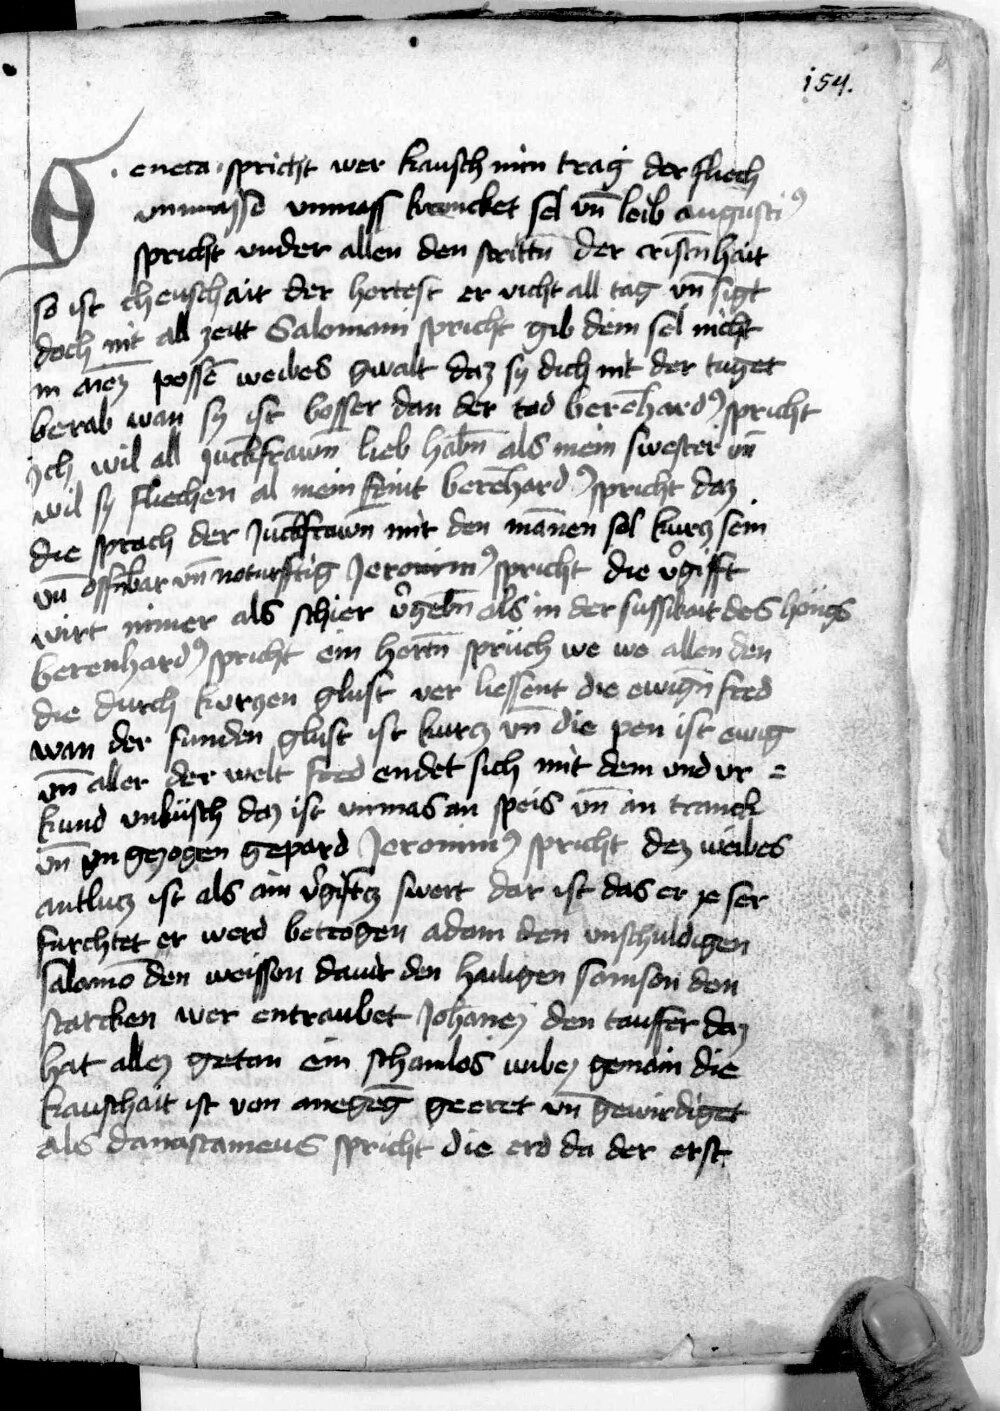 154.
Seneca · spricht wer kausch min trag der fliech
unmassd unmass krencket sel vn̄ leib augusti9
spricht vnder allen den strittn̄ der cristn̄hait
so ist cheuschait der hertest er vicht all tag vn̄ sigt
doch nit all zeitt Salomani spricht gib dein sel nicht
in ainez possen̄ weibes gwalt daz sy dich nit der tuget
berab wan sy ist bosser dan der tod beren̄hard9 spricht
Ich wil all Juckfrawn̄ lieb habn̄ als mein swester vn̄
wil sy fliechen al mein feint beren̄hard9 spricht daz
die sprach der Juckfrawn̄ mit den man̄en sol kurcz sein
vn̄ offn̄bar vn̄ noturfftig Jeronim9 spricht die v̄gifft
wirt nimer als schier v̄gebn̄ als in der sussikait des hönigs
berenhard9 spricht ein hertn̄ sprüch we we allen den
die durch kurczen glust ver liessent die ewign̄ fred
wan der sunden glust ist kurcz vn̄ die pen ist ewig
vn̄ aller der welt fred endet sich mit dem vnd vr =
kund vnküsch daz ist vnmas an speis vn̄ an tranck
vn̄ vn gezogen gepard Jeronim9 spricht dez weibes
antlucz ist als ain v̄giftz swert dar ist das er ye ser
furchtet er werd betrogen adam den vnschuldigen
salamō den weissen dauit den hailigen samson den
starcken wer entraubet Johan̄ez den tauffer daz
hat allez getan ein schamlos wibez gemain die
kauschait ist von anegeḡ geeret vn̄ gewirdiget
als damastameus spricht die erd da der erst